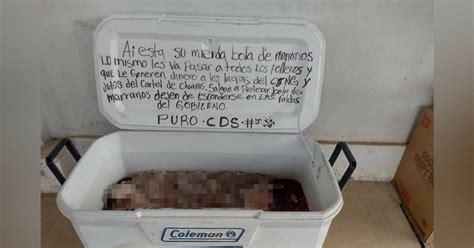 Ai esta su mierda bola de marranos
Lo mismo les va pasar a todos los polleros
y que le Generen dinero a las lacras del CJNG y
Jotos del Cartel de Chiapas, Salgan a Pelear bola de
marranos dejen de Esconderse en LAS faldas
del GOBIERNO.
PURO. CDS. #
Coleman